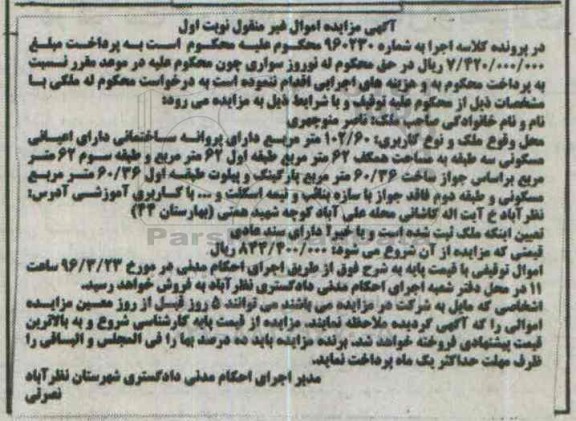 آگهی مزایده اموال غیر منقول نوبت اول
در پرونده کلاسه اجرا به شماره ۹۶۰۲۳۰ محکوم علیه محکوم است به پرداخت مبلغ
۷/۴۲۰/۰۰۰/۰۰۰ ریال در حق محکوم له نوروز سواری چون محکوم علیه در موعد مقرر نسبت
به پرداخت محکوم به و هزینه های اجرایی اقدام ننموده است به درخواست محکوم له ملکی با
مشخصات ذیل از محکوم علیه توقیف و با شرایط ذیل به مزایده می رود:
نام و نام خانوادگی صاحب ملک: ناصر منوچهری
محل وقوع ملک و نوع کاربری: ۱۰۲/۶۰ متر مربع دارای پروانه ساختمانی دارای اعیانی
مسکونی سه طبقه به مساحت همکف ۶۲ متر مربع طبقه اول ۶۲ متر مربع و طبقه سوم ۶۲ متر
مربع براساس جواز ساخت ۶۰/۳۶ متر مربع پارکینگ و پیلوت طبقه اول ۶۰/۳۶ متر مربع
مسکونی و طبقه دوم فاقد جواز با سازه بنائی و نیمه اسکلت و ... با کاربری آموزشی آدرس:
نظرآباد خ آیت اله کاشانی محله علی آباد کوچه شهید همتی (بهارستان ۲۴)
تعیین اینکه ملک ثبت شده است و یا خیر؟ دارای سند عادی
قیمتی که مزایده از آن شروع می شود: ۸۴۴/۴۰۰/۰۰۰ ریال
Pars
اموال توقیفی با قیمت پایه به شرح فوق از طریق اجرای احکام مدنی در مورخ ۹۶/۳/۲۳ ساعت
۱۱ در محل دفتر شعبه اجرای احکام مدنی دادگستری نظرآباد به فروش خواهد رسید.
اشخاصی که مایل به شرکت در مزایده می باشند می توانند ۵ روز قبل از روز معین مزایده
اموالی را که آگهی گردیده ملاحظه نمایند. مزایده از قیمت پایه کارشناسی شروع و به بالاترین
قیمت پیشنهادی فروخته خواهد شد. برنده مزایده باید ده درصد بها را فی المجلس و الباقی را
ظرف مهلت حداکثر یک ماه پرداخت نماید.
مدیر اجرای احکام مدنی دادگستری شهرستان نظرآباد
نصرتی